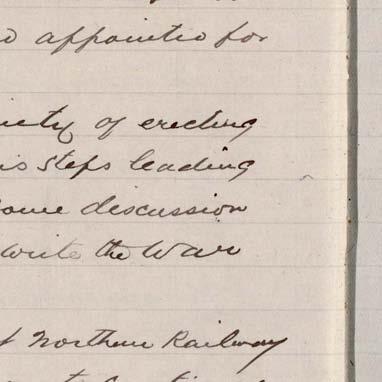 appointed for
of erecting
steps leading
some discussion
write the War
Northern Railway